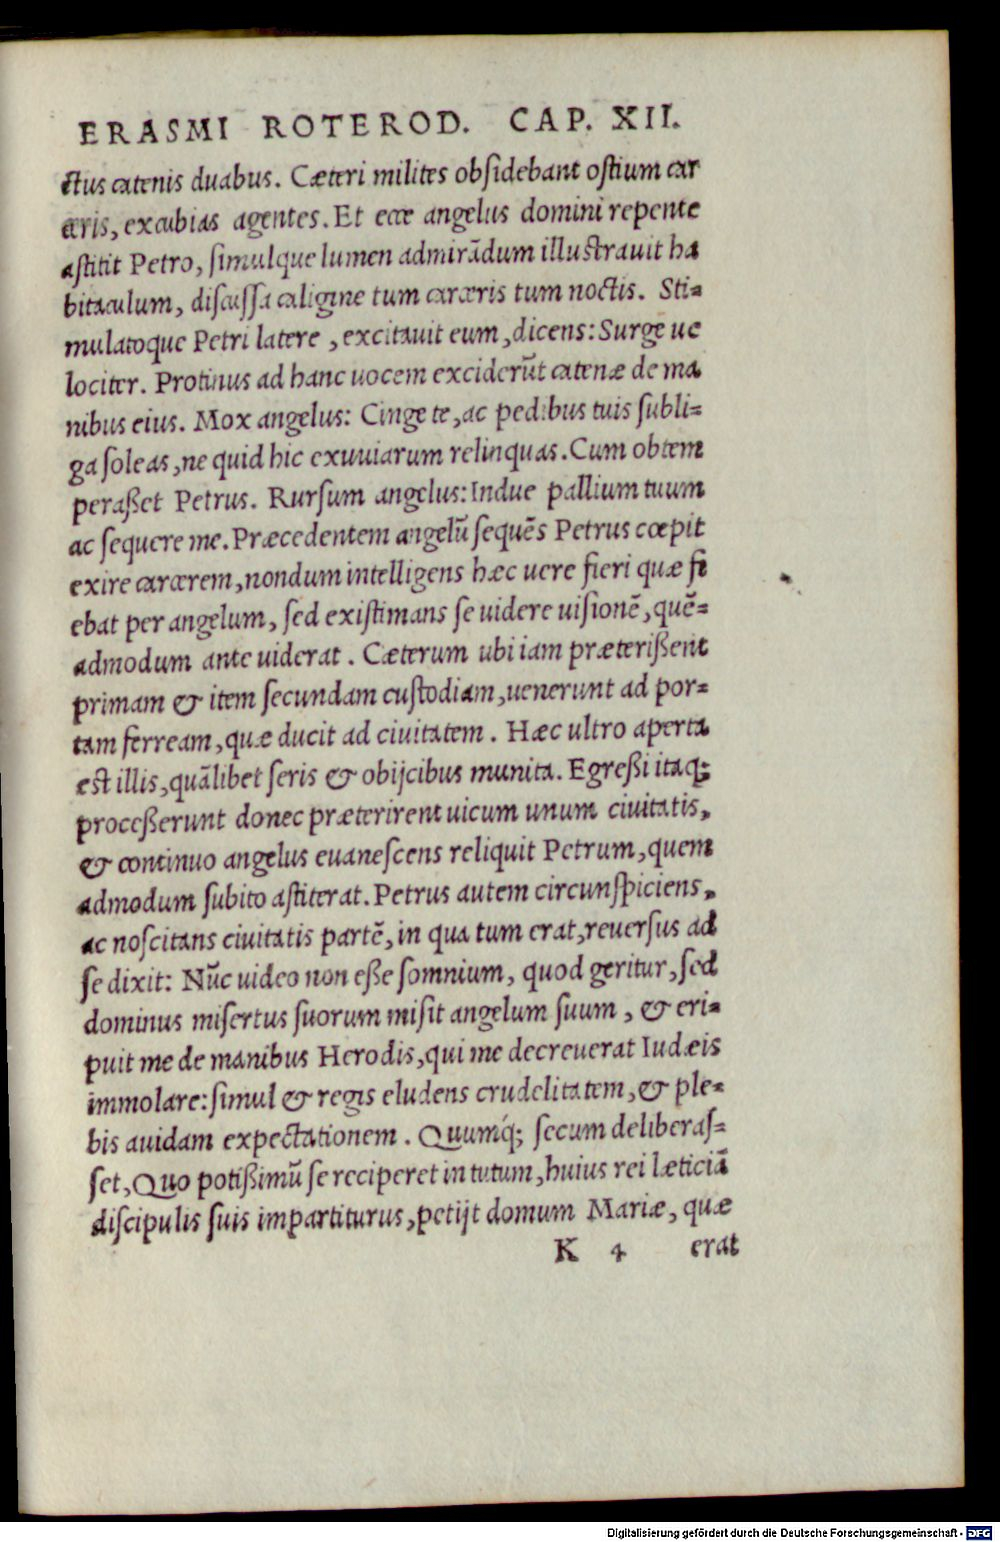 ERASMI ROTEROD. CAP. XII.
ctus catenis duabus. Cæteri milites obſidebant oſtium car
ceris, excubias agentes. Et ecce angelus domini repente
aſtitit Petro, ſimulque lumen admirādum illuſtrauit ha
bitaculum, diſcuſſa caligine tum carceris tum noctis. Sti-
mulatoque Petri latere, excitauit eum, dicens: Surge ue
lociter. Protinus ad hanc uocem exciderūt catenæ de ma
nibus eius. Mox angelus: Cinge te, ac pedibus tuis ſubli-
ga ſoleas, ne quid hic exuuiarum relinquas. Cum obtem
peraßet Petrus. Rurſum angelus: Indue pallium tuum
ac ſequere me. Præcedentem angelū ſequēs Petrus cœpit
exire carcerem, nondum intelligens hæc uere fieri quæ fi
ebat per angelum, ſed exiſtimans ſe uidere uiſionē, quē-
admodum ante uiderat. Cæterum ubi iam præterißent
primam & item ſecundam cuſtodiam, uenerunt ad por-
tam ferream, quæ ducit ad ciuitatem. Hæc ultro aperta
eſt illis, quālibet ſeris & obijcibus munita. Egreßi itaq;
proceßerunt donec præterirent uicum unum ciuitatis,
& continuo angelus euaneſcens reliquit Petrum, quem
admodum ſubito aſtiterat. Petrus autem circunſpiciens,
ac noſcitans ciuitatis partē, in qua tum erat, reuerſus ad
ſe dixit: Nūc uideo non eße ſomnium, quod geritur, ſed
dominus miſertus ſuorum miſit angelum ſuum, & eri-
puit me de manibus Herodis, qui me decreuerat Iudæis
immolare: ſimul & regis eludens crudelitatem, & ple-
bis auidam expectationem. Quumq́; ſecum deliberaſ-
ſet, Quo potißimū ſe reciperet in tutum, huius rei læticiā
diſcipulis ſuis impartiturus, petijt domum Mariæ, quæ
K 4 erat
Digitalisierung gefördert durch die Deutsche Forschungsgemeinschaft - DFG